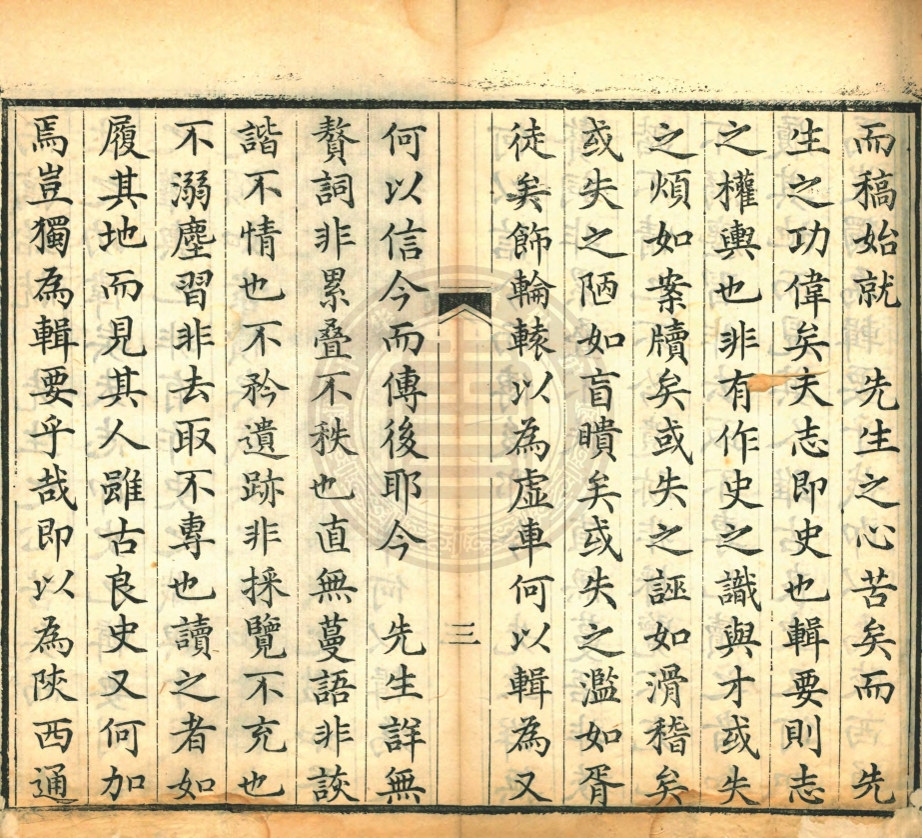 而稿始就　先生之心苦矣而　先
生之功偉矣夫志即史也輯要則志
之權輿也非有作史之識與才或失
之煩如案牘矣或失之誣如滑稽矣
或失之陋如盲瞶矣或失之濫如胥
徒矣飾輪轅以為虛車何以輯為又
三
何以信今而傳後耶今　先生詳無
贅詞非累疊不秩也直無蔓語非詼
諧不情也不矜遺跡非採覽不充也
不溺塵習非去取不專也讀之者如
履其地而見其人雖古良史又何加
焉豈獨為輯要乎哉即以為陝西通